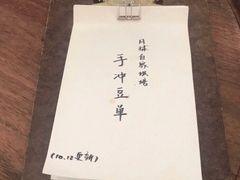 月球自家焙煎
手冲豆单
(10.12更新)